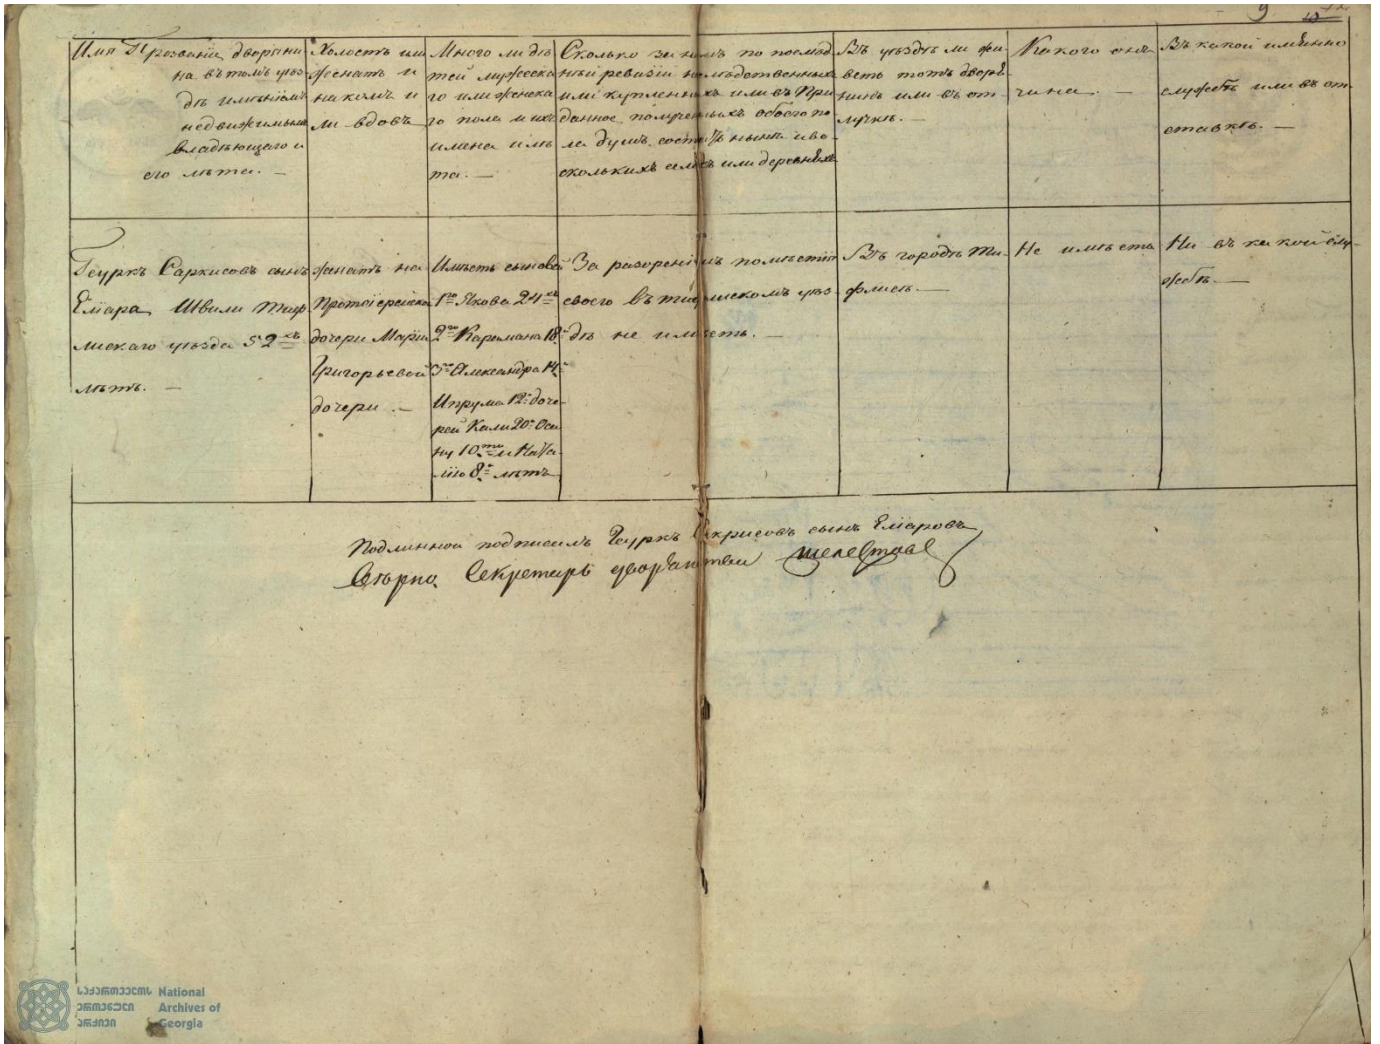 9
Имя Прозваніе дворяни-
на въ томъ уѣз-
дѣ имѣніемъ
недвижимымъ
владѣющаго и
его лѣта. —
Холостъ или
женатъ и
на комъ и
ли вдовъ
Много ли дѣ
тей мужеска
го или женска
го пола и ихъ
имена и лѣ
та. —
Сколько за нимъ по послѣд
ней ревизіи наслѣдственныхъ
или купленныхъ или въ При
данное полученныхъ обоего по
ла душъ состоитъ нынѣ и во
сколькихъ селахъ или деревняхъ
Въ уѣздѣ ли жи
ветъ тотъ дворя
нинъ или въ от
лучкѣ. —
Какого онъ
чина. —
Въ какой имянно
службѣ или въ от
ставкѣ. —
Геуркъ Саркисовъ сынъ
Еліара Швили Тиф
лискаго уѣзда 52хъ
лѣтъ. —
женатъ на
Протоіерейска
дочери Маріи
Григорьевой
дочери. —
Имѣетъ сыновей
1го Якова 24хъ
2го Карамана 18
3го Александра 14
Ипрума 12 доче-
рей Кали 20 Оси
ну 10ти и Ната
лію 8 лѣтъ
За разореніемъ помѣстій
своего въ тифлискомъ уѣз
дѣ не имѣетъ. —
Въ городѣ Ти-
флисѣ. —
Не имѣетъ
Ни въ какой слу-
жбѣ —
Подлинное подписалъ Геуркъ Сакрисовъ сынъ Еліаровъ
Вѣрно Секретарь дворянства Шелестовъ
საქართველოს National
ეროვნული Archives of
არქივი Georgia